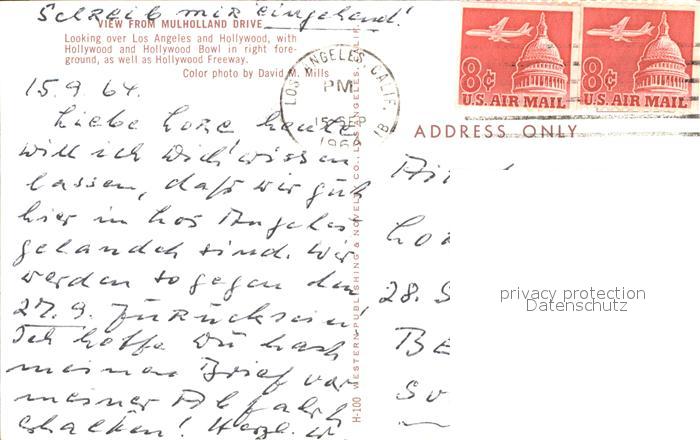 Schreib mir eingehend!
VIEW FROM MULHOLLAND DRIVE
Looking over Los Angeles and Hollywood, with
Hollywood and Hollywood Bowl in right fore-
ground, as well as Hollywood Freeway.
Color photo by David M. Mills
15.9.64.
Liebe Lore heute
will ich Dich wissen
lassen, daß wir gut
hier in Los Angeles
gelandet sind. Wir
werden so gegen den
27.9. zurück sein!
Ich hoffe Du hast
meinen Brief vor
meiner Abfahrt
erhalten! Herzl.
H-100 WESTERN PUBLISHING & NOVELTY CO., LOS ANGELES, CALIF.
LOS ANGELES, CALIF.
PM
15 SEP
8¢
U.S. AIR MAIL
8¢
U.S. AIR MAIL
ADDRESS ONLY
28. S
BE
privacy protection
Datenschutz